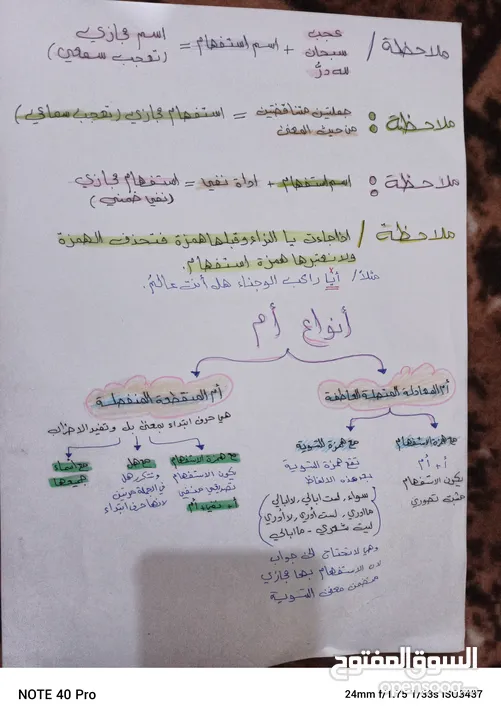 ملاحظة / عجب
سبحان + اسم استفهام = اسم مجازي
لله درُّ (تعجب سماعي)
ملاحظة : جملتين متناقضين = استفهام مجازي (تعجب سماعي)
من حيث المعنى
ملاحظة : اسم استفهام + اداة نفي = استفهام مجازي
(نفي ضمني)
ملاحظة / اذا جاءت يا النداء وقبلها همزة فتحذف الهمزة
ولا نعتبرها همزة استفهام.
مثلاً / أيا راكب الوجناء هل أنت عالمٌ.
أنواع أم
أم المعادلة المتصلة العاطفة
مع همزة الاستفهام
أ + أم
يكون الاستفهام
مثبت تصوري
مع همزة التسوية
تقع همزة التسوية
بعد هذه الالفاظ
(سواء، لست ابالي، لا ابالي
ما ادري، لست أدري، لا أدري
ليت شعري - ما ابالي)
وهي لا تحتاج الى جواب
لان الاستفهام بها مجازي
معنى التسوية
أم المنقطعة المنفصلة
هي حرف ابتداء بمعنى بل وتفيد الاضراب
مع همزة الاستفهام
يكون الاستفهام
تصديقي منفي
أ + نفي + أم
مع هل
وتتكرر هل
في الجملة مرتين
لانها حرف ابتداء
مع اسماء
جميعها
السوق المفتوح
opensooq.com
NOTE 40 Pro
24mm f/1.75 1/33s ISO3437